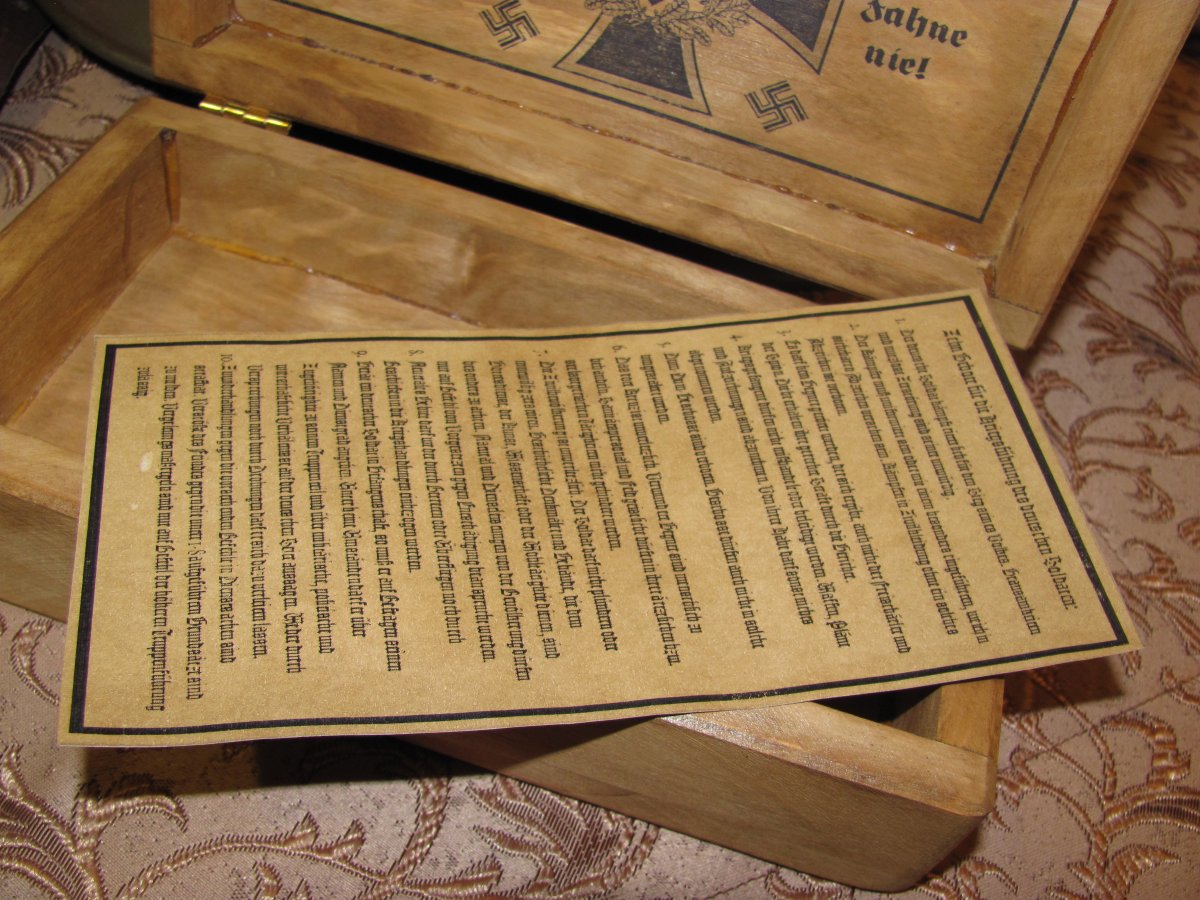 Fahne
nie!
Zehn Gebote für die Kriegsführung des deutschen Soldaten:
1. Der deutsche Soldat kämpft ritterlich für den Sieg seines Volkes. Grausamkeiten
und nutzlose Zerstörung sind seiner unwürdig.
2. Der Kämpfer muß uniformiert sein oder mit einem besonders eingeführten, weithin
sichtbaren Abzeichen versehen sein. Kämpfen in Zivilkleidung ohne ein solches
Abzeichen ist verboten.
3. Es darf kein Gegner getötet werden, der sich ergibt, auch nicht der Freischärler und
der Spion. Diese erhalten ihre gerechte Strafe durch die Gerichte.
4. Kriegsgefangene dürfen nicht mißhandelt oder beleidigt werden. Waffen, Pläne
und Aufzeichnungen sind abzunehmen. Von ihrer Habe darf sonst nichts
abgenommen werden.
5. Dum-Dum-Geschosse sind verboten. Geschosse dürfen auch nicht in solche
umgestaltet werden.
6. Das Rote Kreuz ist unverletzlich. Verwundete Gegner sind menschlich zu
behandeln. Sanitätspersonal und Feldgeistliche dürfen in ihrer ärztlichen bzw.
seelsorgerischen Tätigkeit nicht gehindert werden.
7. Die Zivilbevölkerung ist unverletzlich. Der Soldat darf nicht plündern oder
mutwillig zerstören. Geschichtliche Denkmäler und Gebäude, die dem
Gottesdienst, der Kunst, Wissenschaft oder der Wohltätigkeit dienen, sind
besonders zu achten. Natural- und Dienstleistungen von der Bevölkerung dürfen
nur auf Befehl von Vorgesetzten gegen Entschädigung beansprucht werden.
8. Neutrales Gebiet darf weder durch Betreten oder Überfliegen noch durch
Beschießen in die Kriegshandlungen einbezogen werden.
9. Gerät ein deutscher Soldat in Gefangenschaft, so muß er auf Befragen seinen
Namen und Dienstgrad angeben. Unter keinen Umständen darf er über
Zugehörigkeit zu seinem Truppenteil und über militärische, politische und
wirtschaftliche Verhältnisse auf der deutschen Seite aussagen. Weder durch
Versprechungen noch durch Drohungen darf er sich dazu verleiten lassen.
10. Zuwiderhandlungen gegen die vorstehenden Befehle in Dienstsachen sind
strafbar. Verstöße des Feindes gegen die unter 1-8 aufgeführten Grundsätze sind
zu melden. Vergeltungsmaßregeln sind nur auf Befehl der höheren Truppenführung
zulässig.